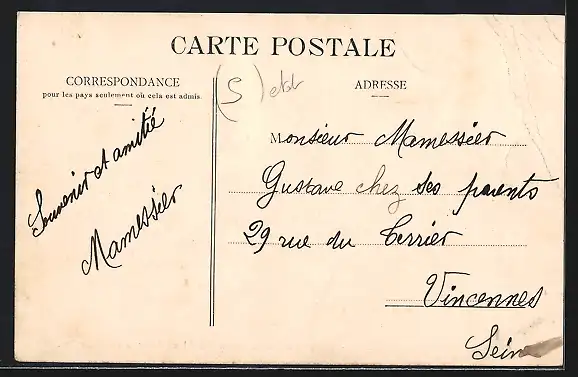 CARTE POSTALE
CORRESPONDANCE
pour les pays seulement où cela est admis
ADRESSE
(S)
Souvenir et amitié
Mamessier
Monsieur Mamessier
Gustave chez ses parents
29 rue du Terrier
Vincennes
Seine